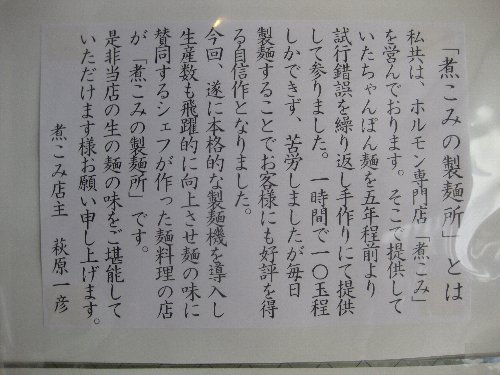 「煮こみの製麺所」とは
私共は、ホルモン専門店「煮こみ」
を営んでおります。そこで提供して
いたちゃんぽん麺を五年程前より
試行錯誤を繰り返し手作りにて提供
して参りました。一時間で一〇玉程
しかできず、苦労しましたが毎日
製麺することでお客様にも好評を得
る自信作となりました。
今回、遂に本格的な製麺機を導入し
生産数も飛躍的に向上させ麺の味に
賛同するシェフが作った麺料理の店
が「煮こみの製麺所」です。
是非当店の生の麺の味をご堪能して
いただけます様お願い申し上げます。
煮こみ店主 萩原一彦